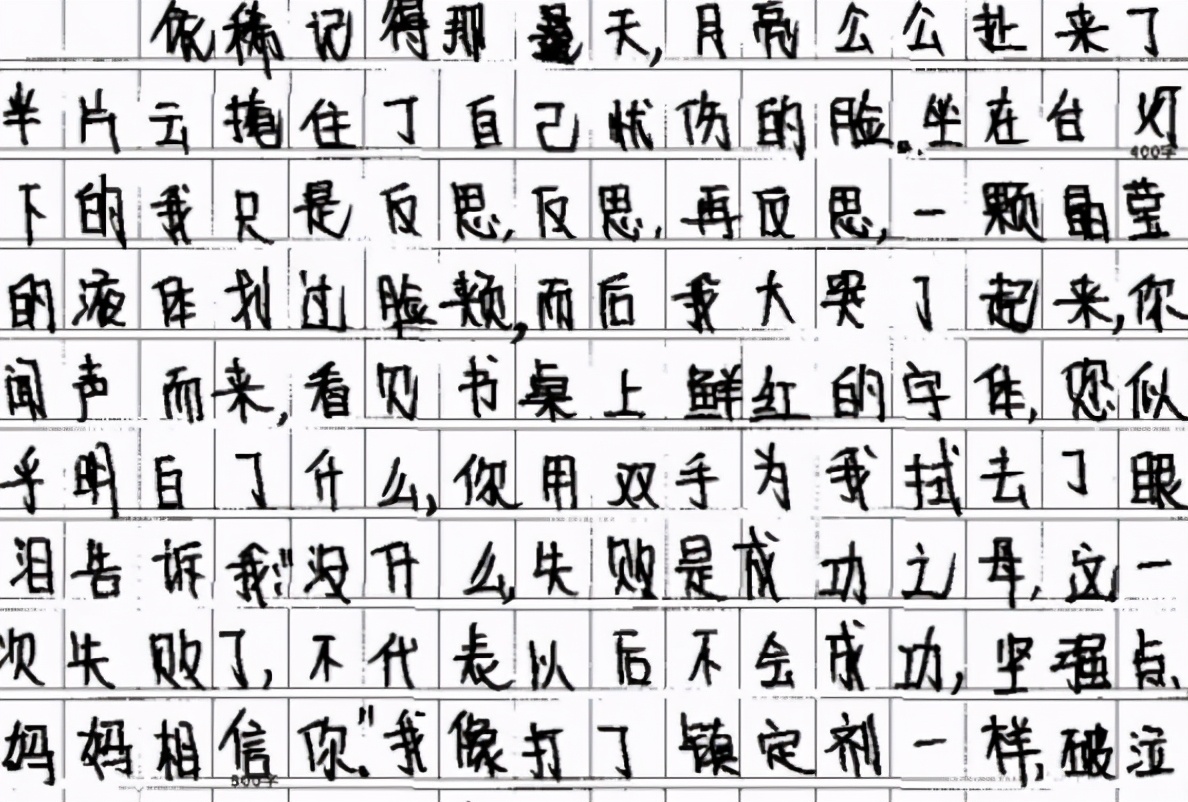 依稀记得那天,月亮公公扯来了
半片云掩住了自己忧伤的脸。坐在台灯
400字
下的我只是反思,反思,再反思,一颗晶莹
的液体划过脸颊,而后我大哭了起来,你
闻声而来,看见书桌上鲜红的字体,您似
乎明白了什么,你用双手为我拭去了眼
泪告诉我:"没什么,失败是成功之母,这一
次失败了,不代表以后不会成功,坚强点,
妈妈相信你。"我像打了镇定剂一样,破泣